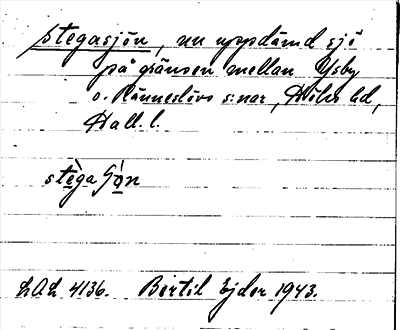 stegasjön, nu uppdämd sjö
på gränsen mellan Ysby
o. Ränneslövs s:nar, Höks hd,
Hall. l.
stègaʃø̀n
LAL 4136. Bertil Ejder 1943.